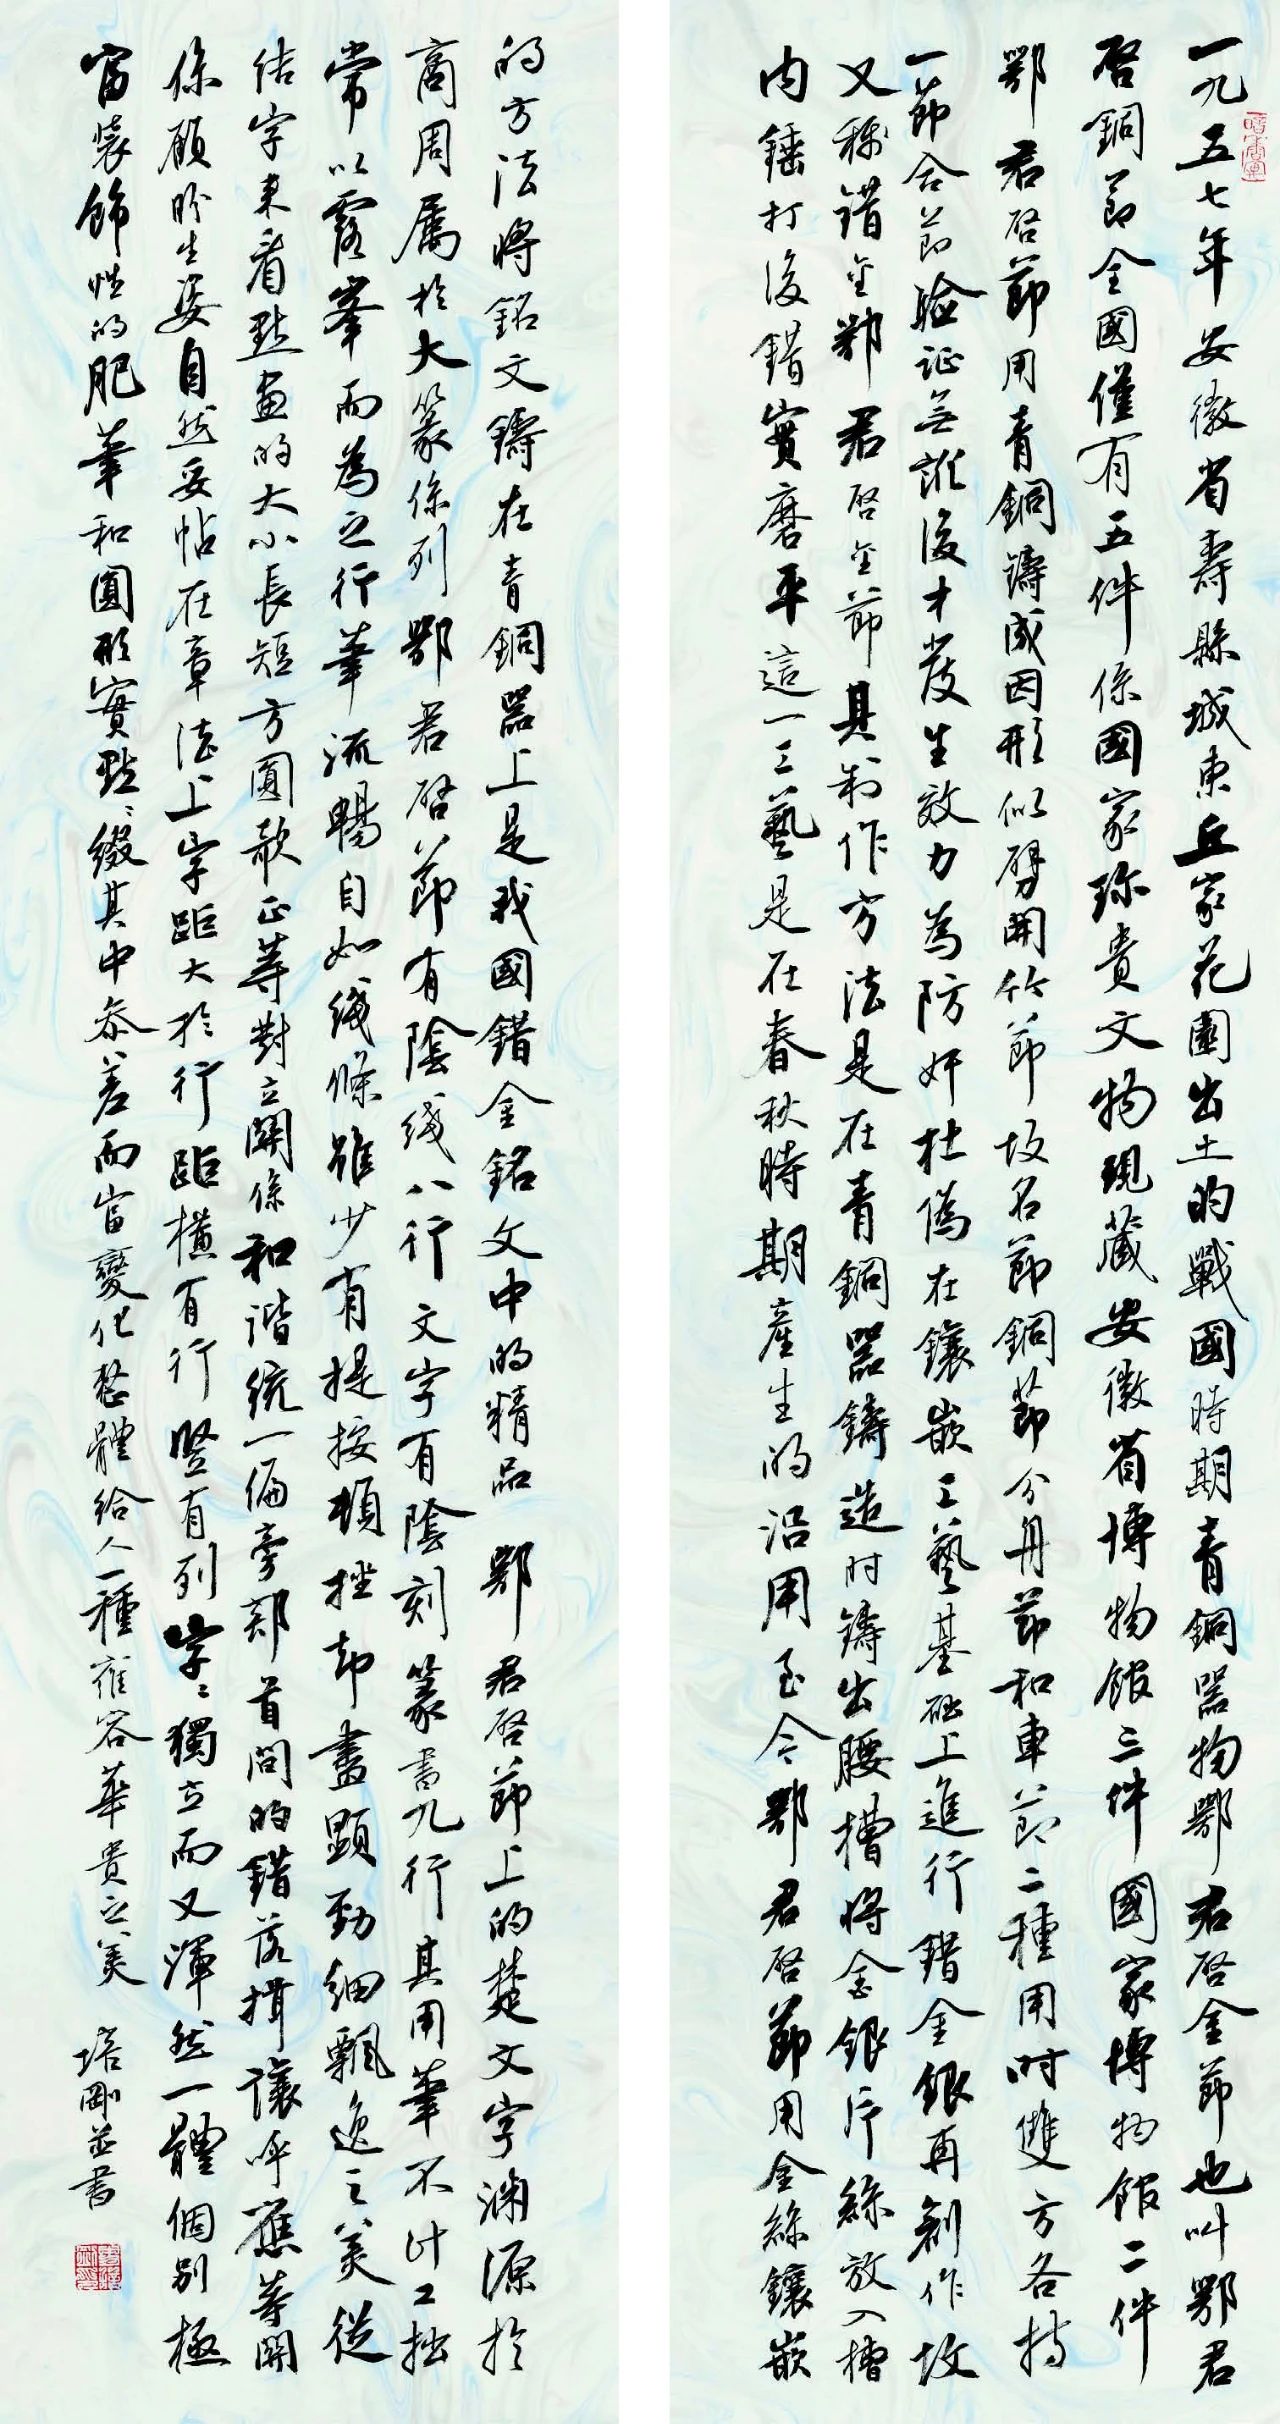 一九五七年安徽省壽縣城東丘家花園出土的戰國時期青銅器物鄂君啓金節也叫鄂君
啓銅節全國僅有五件係國家珍貴文物現藏安徽省博物館三件國家博物館二件
鄂君啓節用青銅鑄成因形似劈開竹節故名節銅節分舟節和車節二種用时雙方各持
一節合節驗证無誰後才發生效力為防奸杜偽在鑲嵌工藝基础上進行錯金銀再創作故
又稱錯金鄂君啓金節具制作方法是在青銅器鑄造时鑄出腰槽將金銀片絲放入槽
内錘打後錯實磨平這一工藝是在春秋時期産生的沿用至今鄂君啓節用金絲鑲嵌
的方法將銘文鑄在青銅器上是我國錯金銘文中的精品鄂君啓節上的楚文字渊源於
商周屬於大篆係列鄂君啓節有陰綫八行文字有陰刻篆書九行其用筆不计工拙
常以露峯而為之行筆流暢自如綫條雖少有提按頓挫却盡顯勁细飄逸之美從
结字來看點画的大小長短方圓欹正等對立關係和谐统一偏旁部首間的錯落揖讓呼應等關
係顧盼生姿自然妥帖在章法上字距大於行距橫有行竪有列字々獨立而又渾然一體個别極
富装飾性的肥筆和圓形實點々綴其中参差而富變化整體给人一種雍容華贵之美
培剛並書